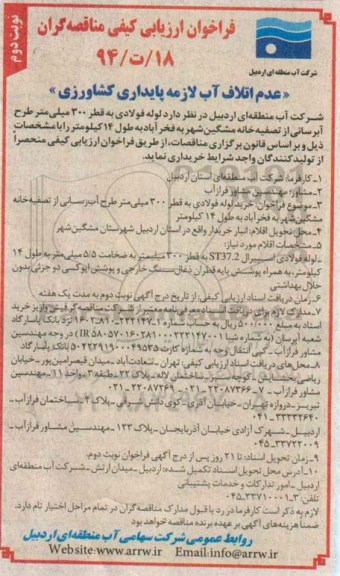 نوبت دوم
فراخوان ارزیابی کیفی مناقصه‌گران
۹۴/ت/۱۸
شرکت آب منطقه‌ای اردبیل
«عدم اتلاف آب لازمه پایداری کشاورزی»
شرکت آب منطقه‌ای اردبیل در نظر دارد لوله فولادی به قطر ۳۰۰ میلی‌متر طرح
آبرسانی از تصفیه خانه مشگین‌شهر به فخرآباد به طول ۱۴ کیلومتر را با مشخصات
ذیل و بر اساس قانون برگزاری مناقصات، از طریق فراخوان ارزیابی کیفی منحصراً
از تولیدکنندگان واجد شرایط خریداری نماید.
۱ـ کارفرما: شرکت آب منطقه‌ای استان اردبیل
۲ـ مشاور: مهندسین مشاور فرازآب
۳ـ موضوع فراخوان: خرید لوله فولادی به قطر ۳۰۰ میلی‌متر طرح آب‌رسانی از تصفیه‌خانه
مشگین‌شهر به فخرآباد به طول ۱۴ کیلومتر
۴ـ محل تحویل اقلام: انبار خریدار واقع در استان اردبیل شهرستان مشگین‌شهر
۵ـ مشخصات اقلام مورد نیاز:
ـ لوله فولادی اسپیرال ST37.2 به قطر ۳۰۰ میلیمتر به ضخامت ۵/۵ میلی‌متر به طول ۱۴
کیلومتر، به همراه پوشش پایه قطران ذغال‌سنگ خارجی و پوشش اپوکسی دو جزئی بدون
حلال بهداشتی
۶ـ زمان دریافت اسناد ارزیابی کیفی: از تاریخ درج آگهی نوبت دوم به مدت یک هفته
۷ـ مدارک لازم برای دریافت اسناد: معرفی‌نامه معتبر از شرکت مناقصه‌گر، فیش واریز خرید
اسناد به مبلغ ۵۰۰/۰۰۰ ریال به حساب شماره
نزد بانک پاسارگاد
شعبه
در وجه مهندسین
مشاور فرازآب ـ کپی انتقال وجه به شماره کارت
بانک پاسارگاد
۸ـ محل‌های دریافت اسناد ارزیابی کیفی: تهران ـ سعادت‌آباد ـ میدان
ـ خیابان
ریاضی بخشایش ـ
ـ پلاک ۲۲ـ طبقه ۳ـ واحد ۱۱ـ مهندسین
مشاور فرازآب ـ
تبریز ـ دروازه تهران ـ خیابان آذری ـ کوی دانش شرقی ـ پلاک ۴ـ ساختمان فرازآب ـ
اردبیل ـ شهرک آزادی خیابان آذربایجان ـ پلاک ۱۲۳ـ مهندسین مشاور فرازآب ـ
۹ـ زمان تحویل اسناد: تا ۲۱ روز پس از درج آگهی فراخوان نوبت دوم.
۱۰ـ آدرس محل تحویل اسناد تکمیل شده: اردبیل ـ میدان ارتش ـ شرکت آب منطقه‌ای
اردبیل ـ امور تدارکات و خدمات پشتیبانی
تلفن: ۳ـ۳۳۷۱۰۰۰۱ـ۰۴۵
لازم به ذکر است کارفرما در رد یا قبول مدارک مناقصه‌گران در تمام مراحل اختیار تام دارد.
ضمناً هزینه‌های آگهی بر عهده برنده مناقصه خواهد بود
روابط عمومی شرکت سهامی آب منطقه‌ای اردبیل
Website:www.arrw.ir Email:info@arrw.ir